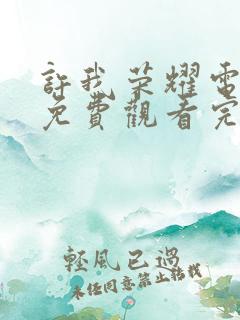 許我荣耀電
免費觀看完
輕風已過
未任同意禁止轉載